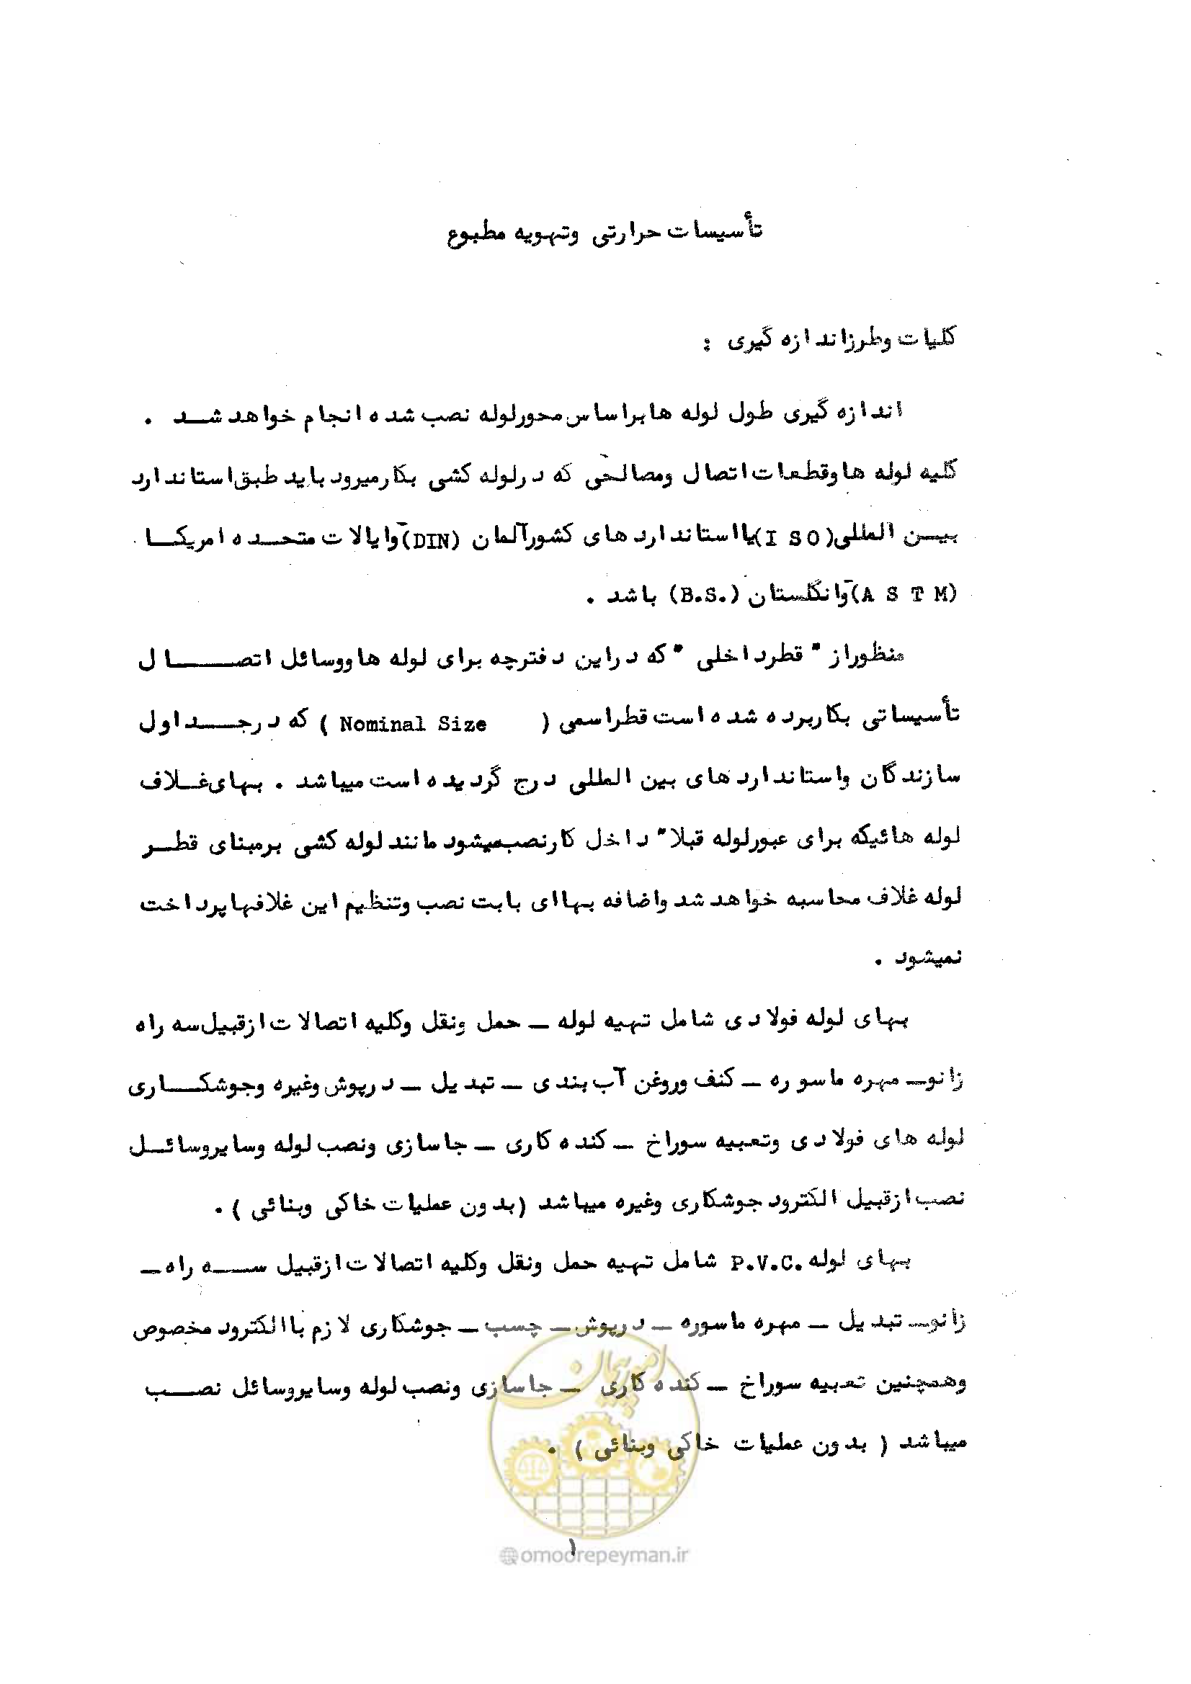 تأسیسات حرارتی وتهویه مطبوع
کلیات وطرزاندازه گیری :
اندازه گیری طول لوله هابراساس محورلوله نصب شده انجام خواهد شد .
کلیه لوله هاوقطعات اتصال ومصالحی که درلوله کشی بکارمیرود باید طبق استاندارد
بین المللی(I S O)یااستانداردهای کشورآلمان (DIN)وایالات متحده امریکا
(A S T M)وانگلستان (B.S.) باشد .
منظوراز " قطرداخلی " که دراین دفترچه برای لوله هاووسائل اتصال
تأسیساتی بکاربرده شده است قطراسمی ( Nominal Size ) که درجداول
سازندگان واستانداردهای بین المللی درج گردیده است میباشد . بهای غلاف
لوله هائیکه برای عبورلوله قبلا" داخل کارنصب میشود مانند لوله کشی برمبنای قطر
لوله غلاف محاسبه خواهد شد واضافه بهاای بابت نصب وتنظیم این غلافهاپرداخت
نمیشود .
بهای لوله فولادی شامل تهیه لوله ـ حمل ونقل وکلیه اتصالات ازقبیل سه راه
زانوـ مهره ماسوره ـ کنف وروغن آب بندی ـ تبدیل ـ درپوش وغیره وجوشکاری
لوله های فولادی وتعبیه سوراخ ـ کنده کاری ـ جاسازی ونصب لوله وسایروسائل
نصب ازقبیل الکترود جوشکاری وغیره میباشد (بدون عملیات خاکی وبنائی ) .
بهای لوله P.V.C. شامل تهیه حمل ونقل وکلیه اتصالات ازقبیل سه راه ـ
زانوـ تبدیل ـ مهره ماسوره ـ درپوش ـ چسب ـ جوشکاری لازم باالکترود مخصوص
وهمچنین تعبیه سوراخ ـ کنده کاری ـ جاسازی ونصب لوله وسایروسائل نصب
میباشد ( بدون عملیات خاکی وبنائی ) .
امورپیمان
۱
@omoorepeyman.ir